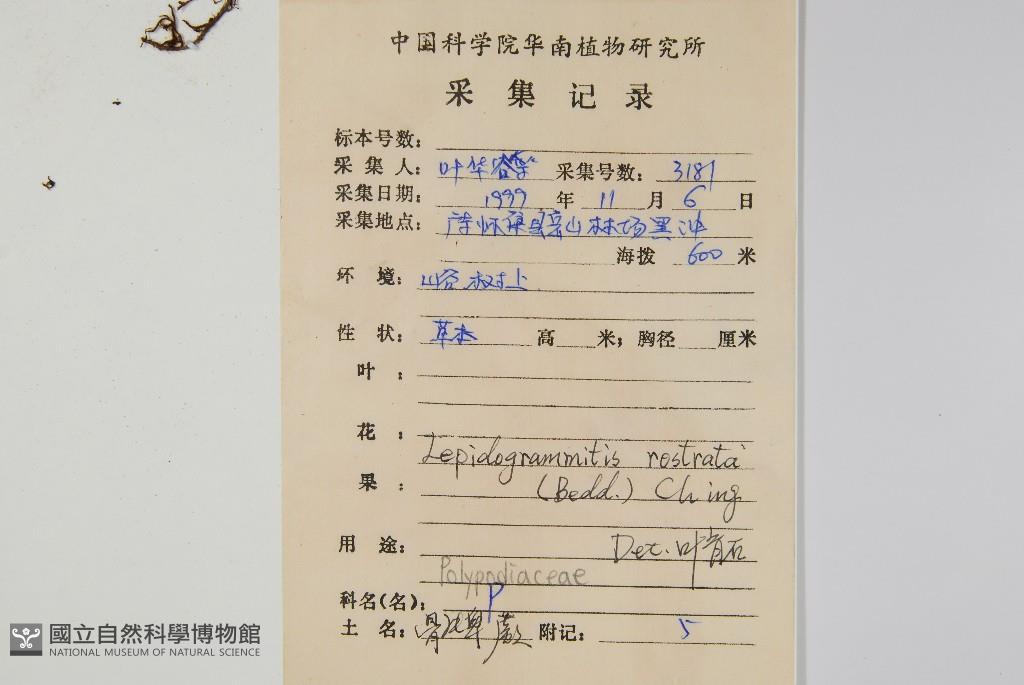 中国科学院华南植物研究所
采集记录
标本号数:
采集人: 叶华谷等 采集号数: 3181
采集日期: 1999 年 11 月 6 日
采集地点: 林场黑冲
海拨 600 米
环境: 山谷树上
性状: 草本 高 米; 胸径 厘米
叶:
花:
Lepidogrammitis rostrata
果:
(Bedd.) Ching
用途:
Det. 叶育石
Polypodiaceae
科名(名): P
土名: 骨牌蕨 附记: 5
國立自然科學博物館
NATIONAL MUSEUM OF NATURAL SCIENCE